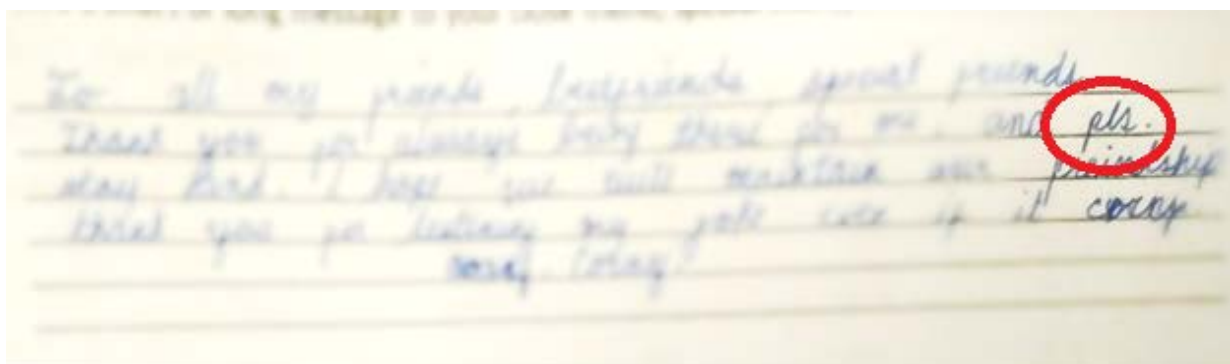 To all my friends, bestfriends, special friends.
Thank you for always being there for me, and pls.
stay kind. I hope we will maintain our friendship
thank you for listening my joke even if it corny
corny